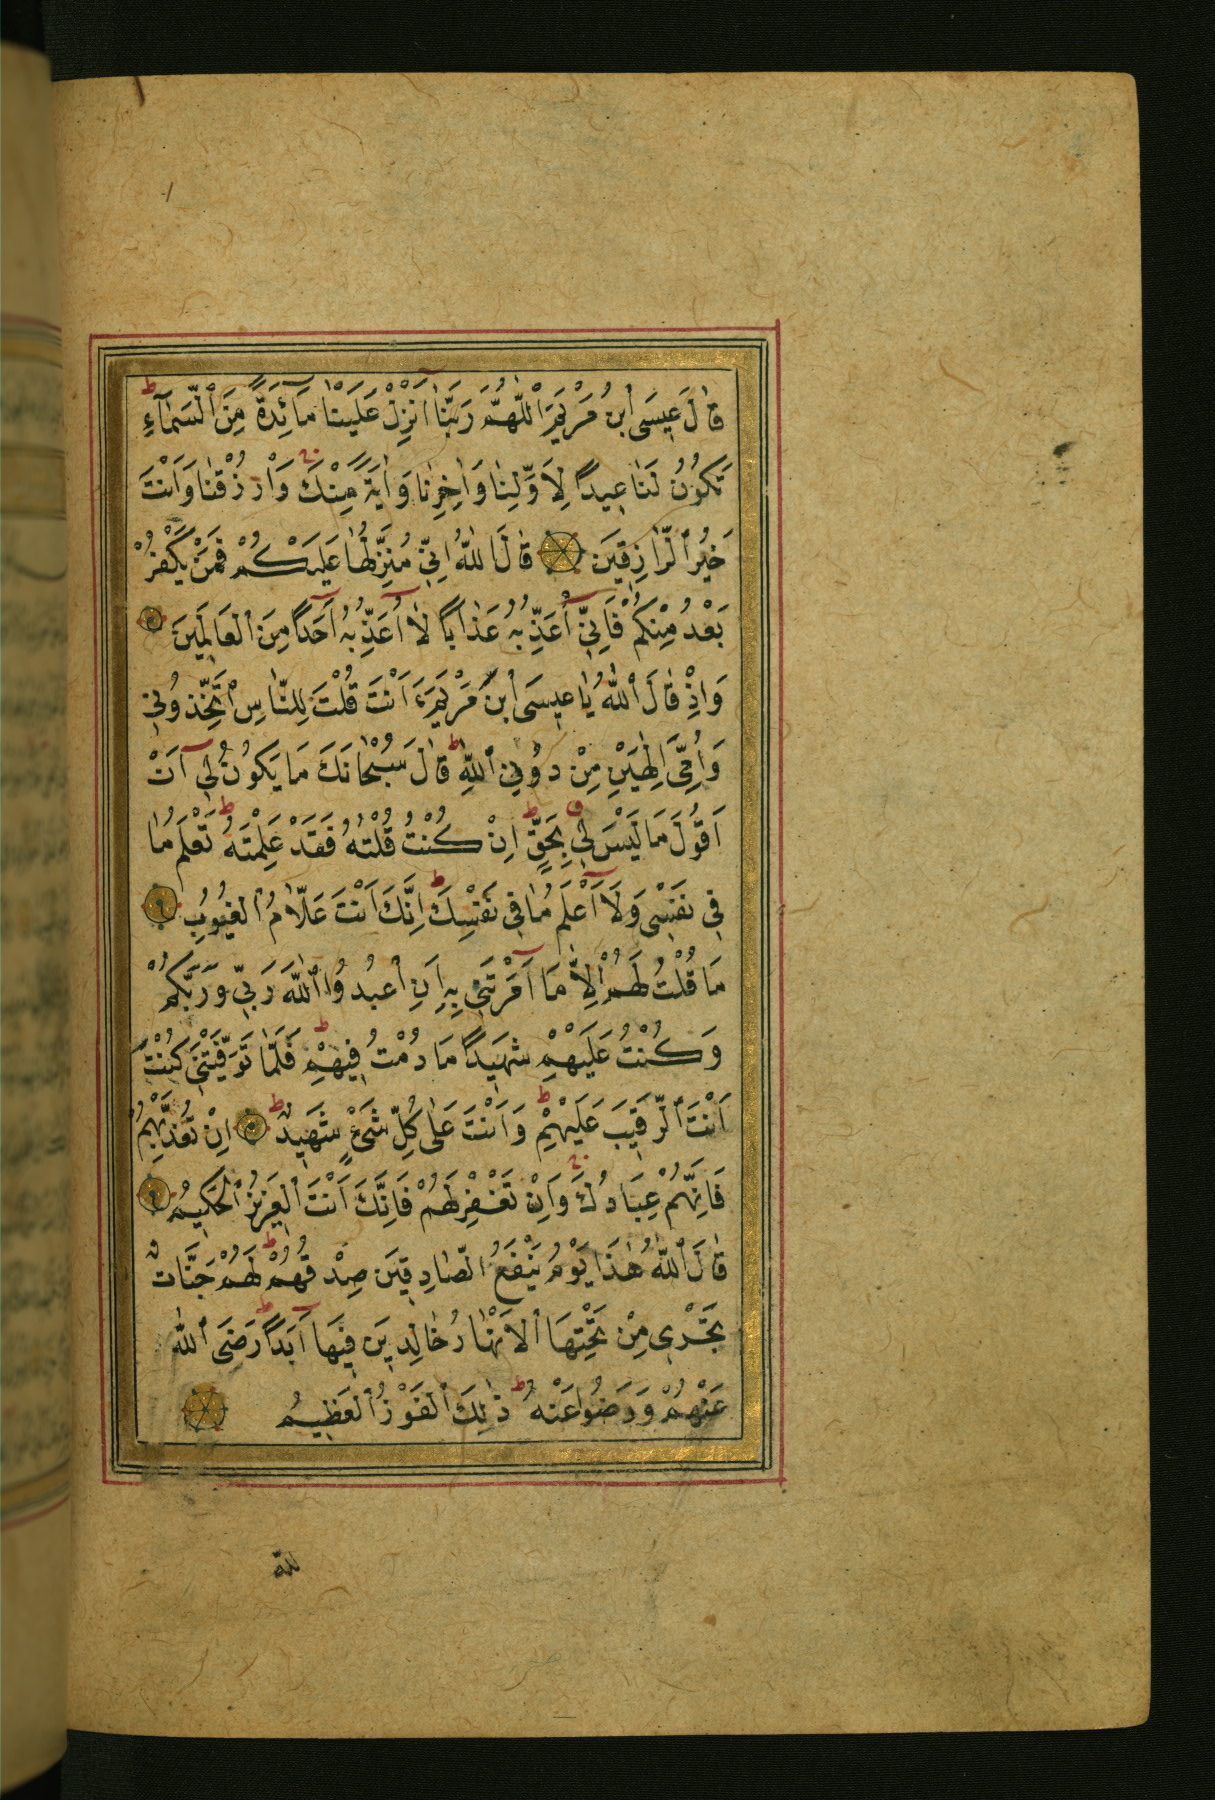 قَالَ عِيسَى ابْنُ مَرْيَمَ اللّٰهُمَّ رَبَّنَا اَنْزِلْ عَلَيْنَا مَآئِدَةً مِنَ السَّمَآءِ ط
تَكُونُ لَنَا عِيدًا لِاَوَّلِنَا وَاٰخِرِنَا وَاٰيَةً مِنْكَ وَارْزُقْنَا وَاَنْتَ
خَيْرُ الرَّازِقِينَ قَالَ اللّٰهُ اِنِّي مُنَزِّلُهَا عَلَيْكُمْ فَمَنْ يَكْفُرْ
بَعْدُ مِنْكُمْ فَاِنِّي اُعَذِّبُهُ عَذَابًا لَا اُعَذِّبُهُ اَحَدًا مِنَ الْعَالَمِينَ
وَاِذْ قَالَ اللّٰهُ يَا عِيسَى ابْنَ مَرْيَمَ ءَاَنْتَ قُلْتَ لِلنَّاسِ اتَّخِذُونِي
وَاُمِّيَ اِلٰهَيْنِ مِنْ دُونِ اللّٰهِ ط قَالَ سُبْحَانَكَ مَا يَكُونُ لِي اَنْ
اَقُولَ مَا لَيْسَ لِي ق بِحَقٍّ ط اِنْ كُنْتُ قُلْتُهُ فَقَدْ عَلِمْتَهُ ط تَعْلَمُ مَا
فِي نَفْسِي وَلَا اَعْلَمُ مَا فِي نَفْسِكَ ط اِنَّكَ اَنْتَ عَلَّامُ الْغُيُوبِ
مَا قُلْتُ لَهُمْ اِلَّا مَا اَمَرْتَنِي بِهِ اَنِ اعْبُدُوا اللّٰهَ رَبِّي وَرَبَّكُمْ
وَكُنْتُ عَلَيْهِمْ شَهِيدًا مَا دُمْتُ فِيهِمْ ط فَلَمَّا تَوَفَّيْتَنِي كُنْتَ
اَنْتَ الرَّقِيبَ عَلَيْهِمْ ط وَاَنْتَ عَلٰى كُلِّ شَيْءٍ شَهِيدٌ ط اِنْ تُعَذِّبْهُمْ
فَاِنَّهُمْ عِبَادُكَ وَاِنْ تَغْفِرْ لَهُمْ فَاِنَّكَ اَنْتَ الْعَزِيزُ الْحَكِيمُ
قَالَ اللّٰهُ هٰذَا يَوْمُ يَنْفَعُ الصَّادِقِينَ صِدْقُهُمْ ط لَهُمْ جَنَّاتٌ
تَجْرِي مِنْ تَحْتِهَا الْاَنْهَارُ خَالِدِينَ فِيهَا اَبَدًا ط رَضِيَ اللّٰهُ
عَنْهُمْ وَرَضُوا عَنْهُ ط ذٰلِكَ الْفَوْزُ الْعَظِيمُ
لله